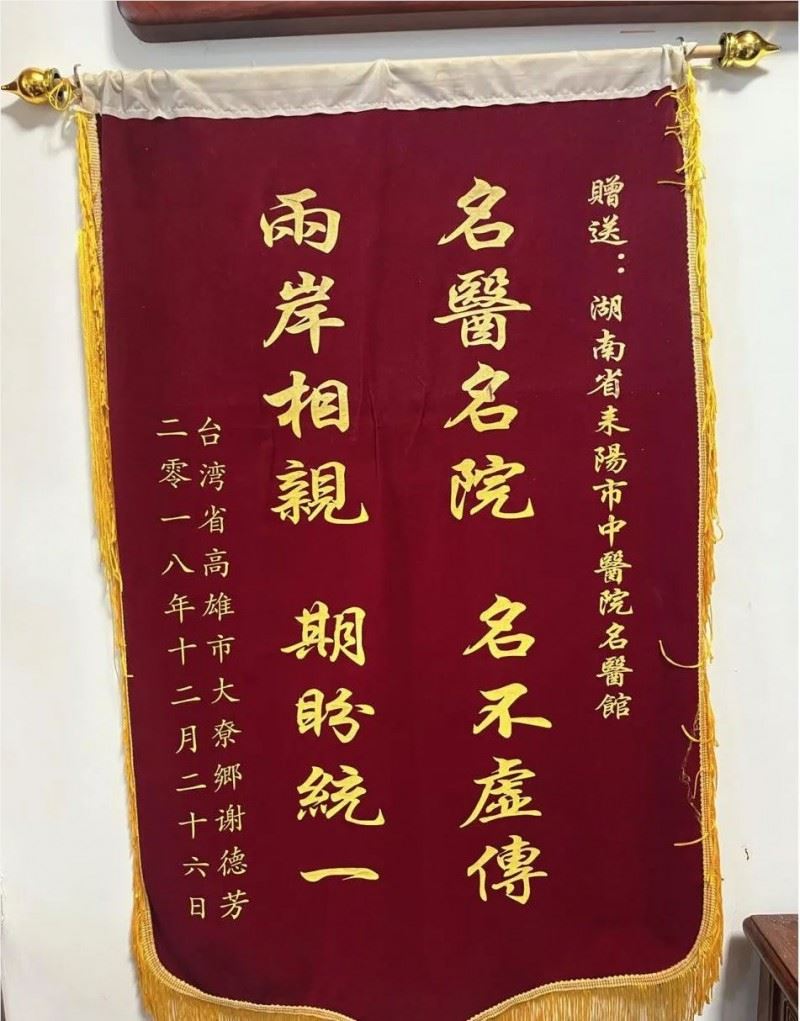 贈送：湖南省耒陽市中醫院名醫館
名醫名院 名不虛傳
兩岸相親 期盼統一
台湾省高雄市大寮鄉谢德芳
二零一八年十二月二十六日